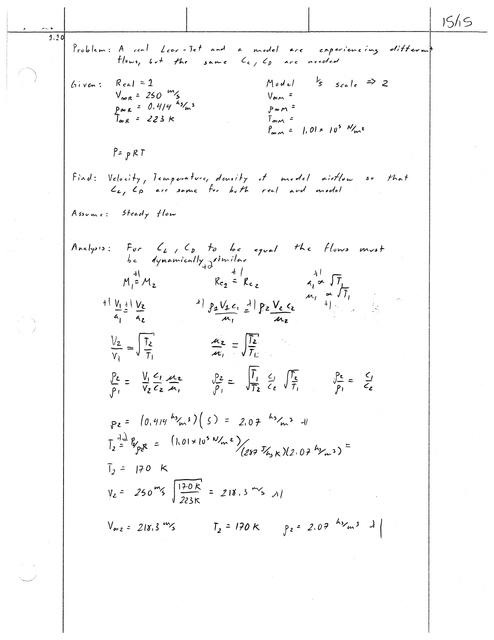 15/15
5.20
Problem: A real Lear-Jet and a model are experiencing different
flows, but the same CL, CD are needed
Given: Real = 1 Model 1/5 scale => 2
V∞R = 250 m/s V∞M =
ρ∞R = 0.414 kg/m³ ρ∞M =
T∞R = 223 K T∞M =
P∞M = 1.01 x 10⁵ N/m²
P = ρRT
Find: Velocity, Temperature, density of model airflow so that
CL, CD are same for both real and model
Assume: Steady flow
Analysis: For CL, CD to be equal the flows must
be dynamically similar
M₁ = M₂ Re₂ = Re₂ a₁ ∝ √T₁
μ₁ ∝ √T₁
V₁/a₁ = V₂/a₂ ρ₁V₁c₁/μ₁ = ρ₂V₂c₂/μ₂
V₂/V₁ = √(T₂/T₁) μ₂/μ₁ = √(T₂/T₁)
ρ₂/ρ₁ = V₁/V₂ c₁/c₂ μ₂/μ₁ ρ₂/ρ₁ = √(T₁/T₂) c₁/c₂ √(T₂/T₁) ρ₂/ρ₁ = c₁/c₂
ρ₂ = (0.414 kg/m³)(5) = 2.07 kg/m³
T₂ = P₂/ρ₂R = (1.01 x 10⁵ N/m²)/(287 J/kg K)(2.07 kg/m³) =
T₂ = 170 K
V₂ = 250 m/s √(170 K/223K) = 218.3 m/s
V∞2 = 218.3 m/s T₂ = 170 K ρ₂ = 2.07 kg/m³